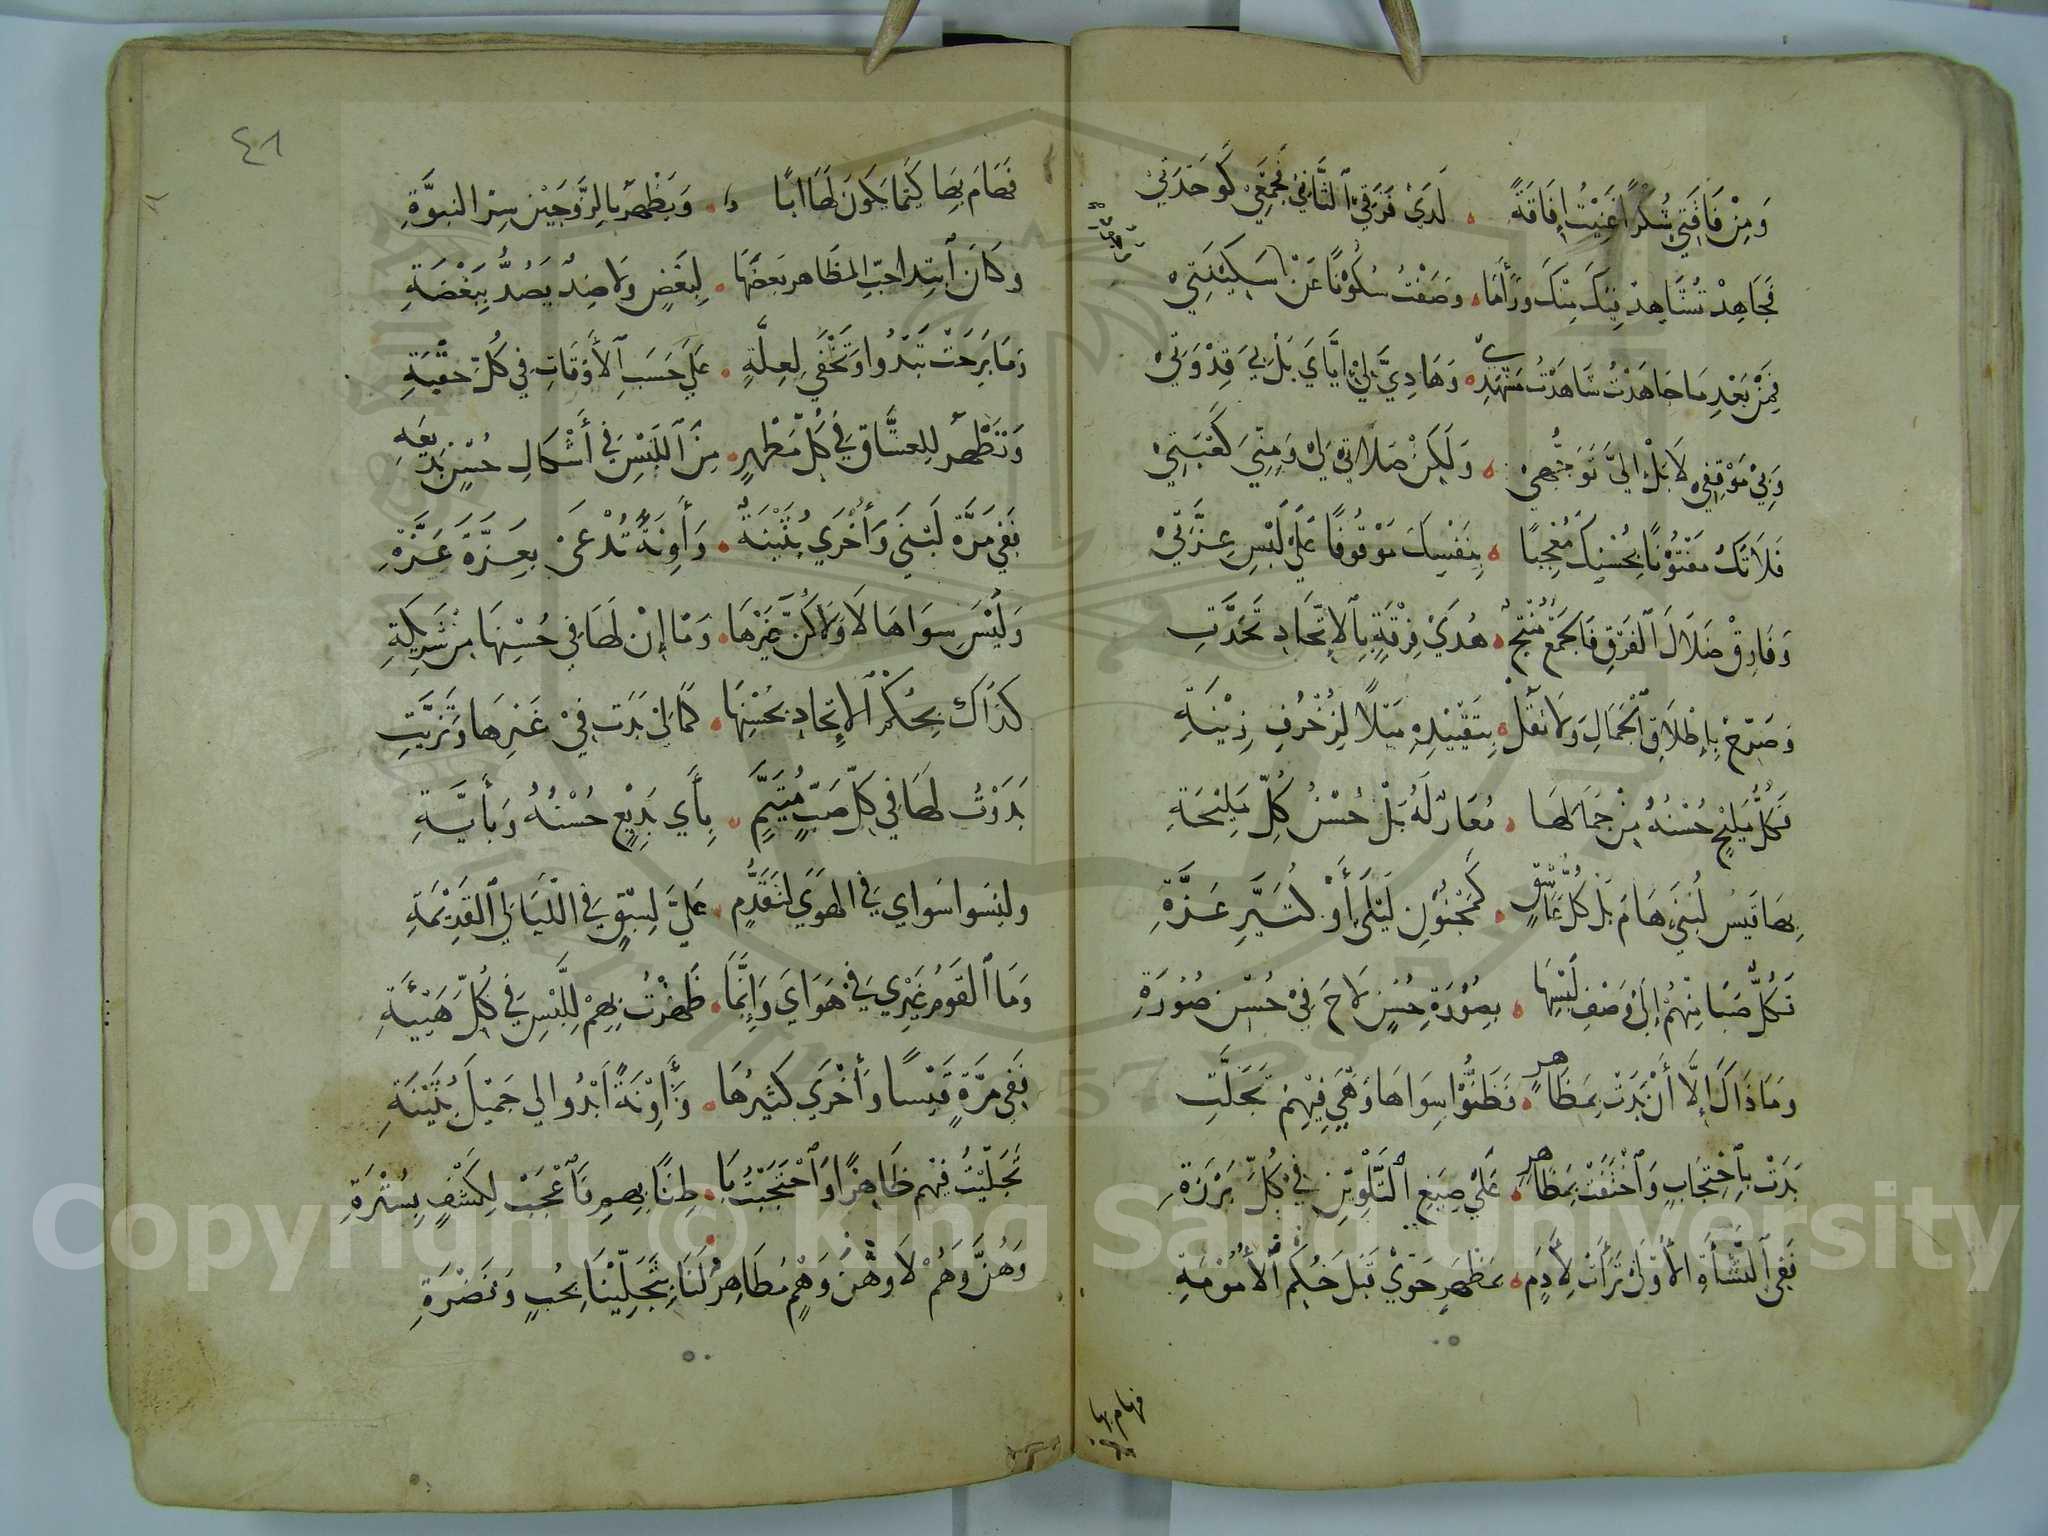 وَمِنْ فَاقَتِي سُكْرًا غَنِيْتُ إِفَاقَةً ۰ لَدَيْ فَرْقِيَ ٱلثَّانِيْ فَجَمْعِيْ كَوَحْدَتِيْ
فَجَاهِدْ تُشَاهِدْ فِيْكَ مِنْكَ وَرَأمَا ۰ وَصَفْتُ سُكُوْنًا عَنْ سَكِيْنَتِيْ
فَمِنْ بَعْدِ مَا جَاهَدْتُ شَاهَدْتُ مَشْهَدِيْ ۰ وَهَادِيَّ لِيْ إِيَّايَ بَلْ بِيَ قِدْوَتِيْ
وَبِيْ مَوْقِفِيْ لَا بَلْ إِلَيَّ تَوَجُّهِيْ ۰ وَلَكِنْ صَلَاتِيْ لِيْ وَمِنِّيَ كَعْبَتِيْ
فَلَا تَكُ مَفْتُوْنًا بِحُسْنِكَ مُعْجِبًا ۰ بِنَفْسِكَ مَوْقُوفًا عَلَيْ لَبْسِ عِزَّتِيْ
وَفَارِقْ ضَلَالَ ٱلفَرْقِ فَالجَمْعُ مُنْتِجٌ ۰ هُدَيْ فِرْقَةٍ بِالإِتِّحَادِ تَحَدَّتِ
وَصَرِّحْ بِإِطْلَاقِ ٱلْجَمَالِ وَلَا تَقُلْ ۰ بِتَقْيِيْدِهِ مَيْلًا لِزُخْرُفِ زِيْنَةِ
فَكُلُّ مَلِيْحٍ حُسْنُهُ مِنْ جَمَالِهَا ۰ مُعَارٌ لَهُ بَلْ حُسْنُ كُلِّ مَلِيْحَةِ
بِهَا قَيْسُ لُبْنَيْ هَامَ بَلْ كُلُّ عَاشِقٍ ۰ كَمَجْنُوْنِ لَيْلَيْ أَوْ كُثَيِّرِ عَزَّةِ
فَكُلٌّ صَبَا مِنْهُمْ إِلَيْ وَصْفِ لَبْسِهَا ۰ بِصُوْرَةِ حُسْنٍ لَاحَ فِيْ حُسْنِ صُوْرَةِ
وَمَا ذَاكَ إِلَّا أَنْ بَدَتْ بِمَظَاهِرٍ ۰ فَظَنُّوْا سِوَاهَا وَهْيَ فِيْهِمْ تَجَلَّتِ
بَدَتْ بِٱحْتِجَابٍ وَٱخْتَفَتْ بِمَظَاهِرٍ ۰ عَلَيْ صِبَغِ ٱلتَّلْوِيْنِ فِيْ كُلِّ بَرْزَةِ
فَفِي ٱلنَّشْأَةِ الأُوْلَيْ تَرَاءَتْ لِآدَمٍ ۰ بِمَظْهَرِ حَوَّيْ قَبْلَ حُكْمِ ٱلأُمُوْمَةِ
فهام بها
٤٨
فَهَامَ بِهَا كَيْمَا يَكُونَ لَهَا ابًا ۰ وَيَظْهَرُ بِالزَّوْجَيْنِ سِرُّ النبُوَّةِ
وكَانَ ٱبْتِدا حُبِّ المَظَاهر بَعْضَهَا ۰ لِبَعْضٍ وَلَا ضِدٌ يَصُدُّ بِبَغْضَةِ
وَمَا بَرِحَتْ تَبْدُوا وَتَخْفَي لِعِلَّةٍ ۰ عَلَي حَسَبِ ٱلأَوْقَاتِ فِي كُلِّ حِقْبَةِ
وَتَظْهَرُ لِلعشَّاقِ فِي كُلِّ مَظْهرٍ ۰ مِنَ ٱللَّبْسِ فِي أَشْكَالِ حُسْنٍ بَدِيعَةِ
فَفِي مَرَّةٍ لُبْنَي وَأُخْرَي بُثَيْنَةً ۰ وَأوِنَةً تُدْعَيْ بِعَزَّةَ عَزَّةِ
وَلَيْسَ سِوَاهَا لَا وَلَا كُنَّ غَيْرَهَا ۰ وَمَا إنْ لَهَا فِي حُسْنِهَا مِنْ شَرِيكَةِ
كذَاكَ بِحُكْمِ ٱلإِتِّحَادِ بِحُسْنِهَا ۰ كَمَا لِيْ بَدَت فِيْ غَيْرِهَا وَتَزَيَّتِ
بَدَوْتُ لَهَا فِي كُلِّ صَبٍّ مُتَيَّمٍ ۰ بِأَي بَدِيْعٍ حُسْنُهُ وَبأَيَّةِ
وليْسَوا سَواي فِي الهَوَي لِتَقَدُّمٍ ۰ عَلَيَّ لِسبْقٍ فِي اللَّيَالِي ٱلقَدِيْمَةِ
وَمَا ٱلقَومُ غَيْرِي فِي هَوَايَ وَإِنَّمَا ۰ ظَهَرْتُ بِهِمْ لِلَّبْسِ فِي كُلِّ هَيْئَةِ
فَفِي مَرَّةٍ قَيْسًا وَأُخْرَي كثَيِّرُهَا ۰ وَآوِنَةً أَبْدُوا لي جَمِيْلَ بُثَيْنَةِ
تَجَلَّيْتُ فِيْهِم ظَاهِرًا وَٱحْتَجَبْتُ بَا ۰ طِنًا بِهِمِ فَٱعْجَبْ لِكَشْفٍ بِسُتْرَةِ
وَهُنَّ وَهُمْ لَا وَهْنَ وَهْمٍ مَظَاهِرٌ ۰ لَنَا بِتَجَلِّيْنَا بِحُبٍ وَنَضْرَةِ
Copyright © King Saud University
1957